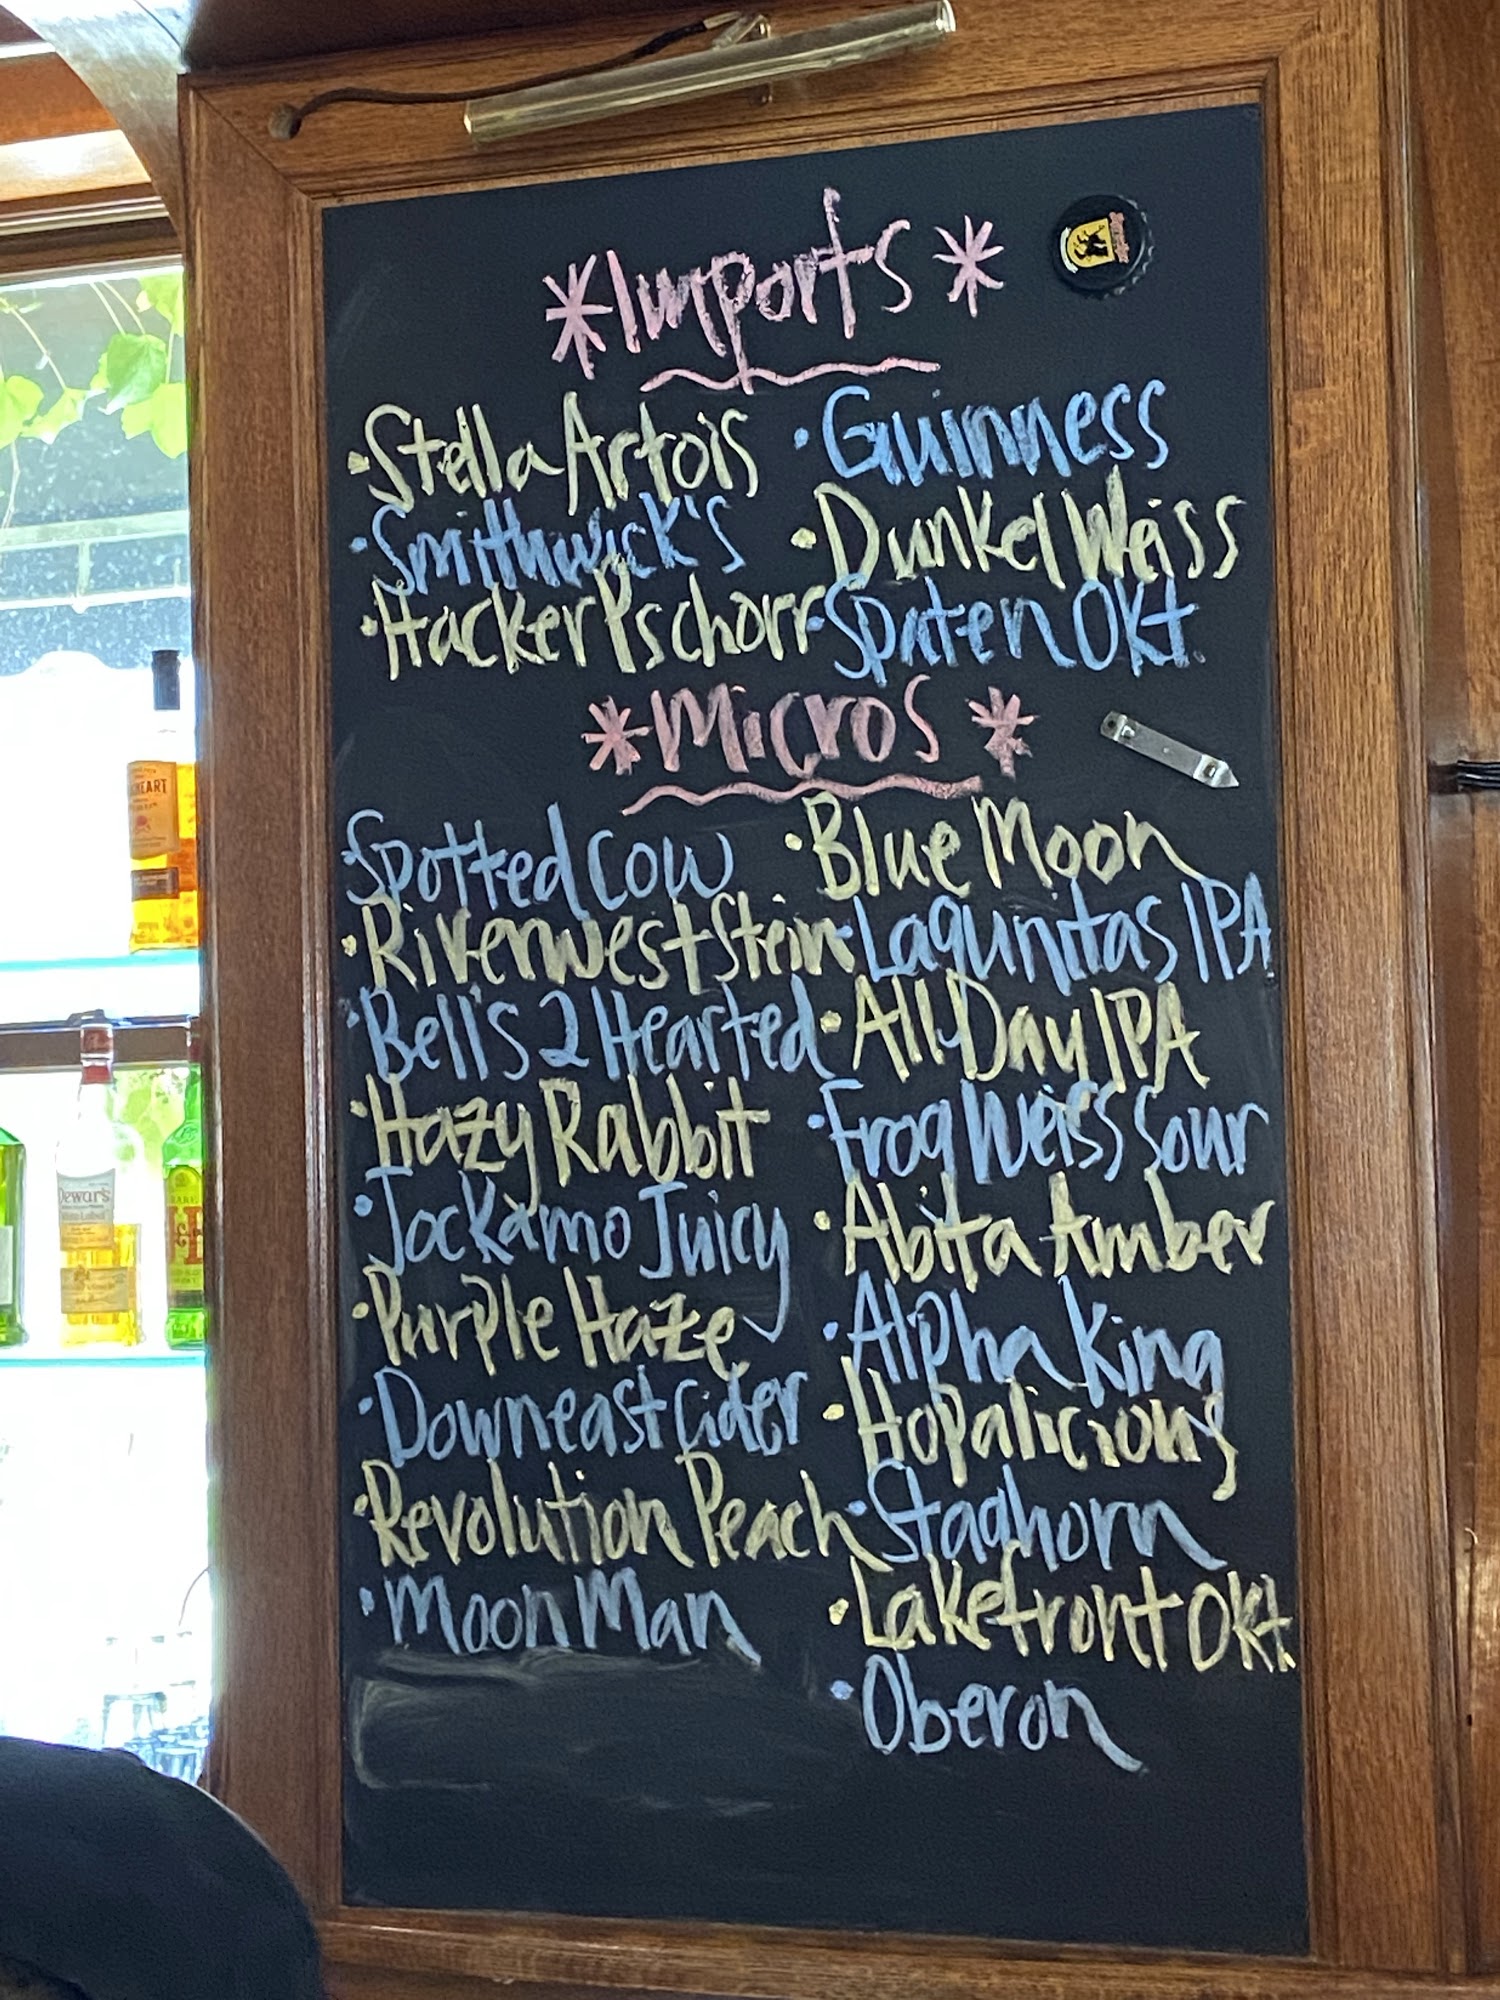 *Imports*
·Stella Artois ·Guinness
·Smithwick's ·Dunkel Weiss
·Hacker Pschorr ·Spaten Okt.
*Micros*
·Spotted Cow ·Blue Moon
·Riverwest Stein ·Lagunitas IPA
·Bell's 2 Hearted ·All Day IPA
·Hazy Rabbit ·Frog Weiss Sour
·Jockamo Juicy ·Abita Amber
·Purple Haze ·Alpha King
·Downeast Cider ·Hopalicious
·Revolution Peach ·Staghorn
·Moon Man ·Lakefront Okt.
·Oberon
Dewar's